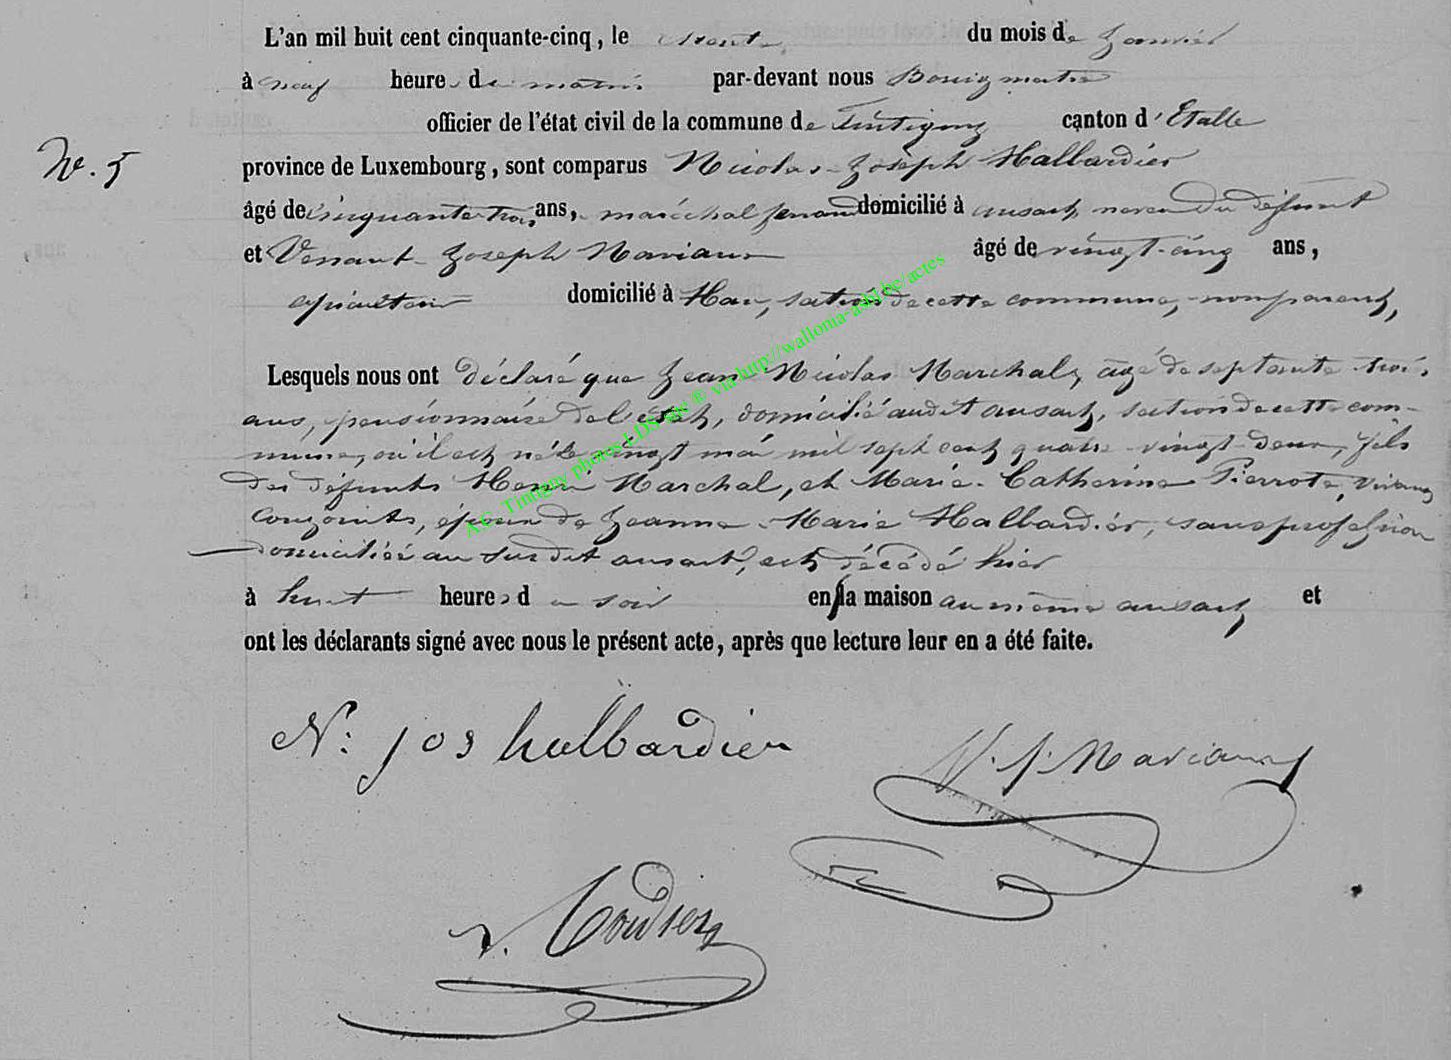 L'an mil huit cent cinquante-cinq, le trente du mois de Janvier
à neuf heures du matin par-devant nous Bourgmestre
officier de l'état civil de la commune de Tintigny canton d'Etalle
N°. 5
province de Luxembourg, sont comparus Nicolas-Joseph Halbardier
âgé de cinquante trois ans, maréchal ferrant domicilié à ansart, neveu du défunt
et Venant-Joseph Mariaux âgé de vingt-cinq ans,
domicilié à Han, section de cette commune, non parent,
Lesquels nous ont déclaré que Jean Nicolas Marchal, âgé de septante trois
ans, pensionnaire de l'état, domicilié audit ansart, section de cette com-
mune, où il est né le vingt mai mil sept cent quatre-vingt-deux, fils
des défunts Henri Marchal, et Marie-Catherine Pierrote, vivans
conjoints, époux de Jeanne-Marie Halbardier, sans profession
domiciliée au susdit ansart, est décédé hier
à huit heures du soir en la maison au même ansart, et
ont les déclarants signé avec nous le présent acte, après que lecture leur en a été faite.
N: jos halbardier
V. J. Mariaux
A.C. Tintigny photos LDS via http://wallonia-asbl.be/actes